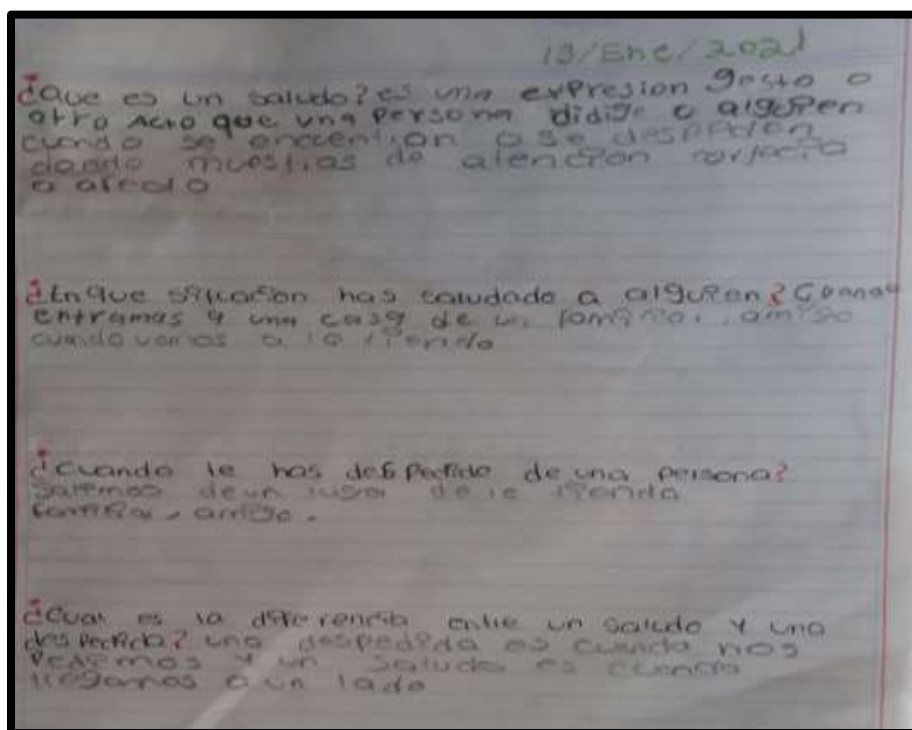 13/Ene/2021
¿Que es un saludo? es una expresion gesto o
otro Acto que una persona didige a alguien
cuando se encuentran o se despiden
dando muestras de atención cortecia
o afecto
¿En que situacion has saludado a alguien?
entramos a una casa de un familiar, amigo
cuando vamos a la tienda
¿Cuando te has despedido de una persona?
Salimos de un lugar de la tienda
familiar, amigo.
¿Cual es la diferencia entre un saludo y una
despedida? una despedida es cuando nos
y un saludo es cuando
llegamos a un lado